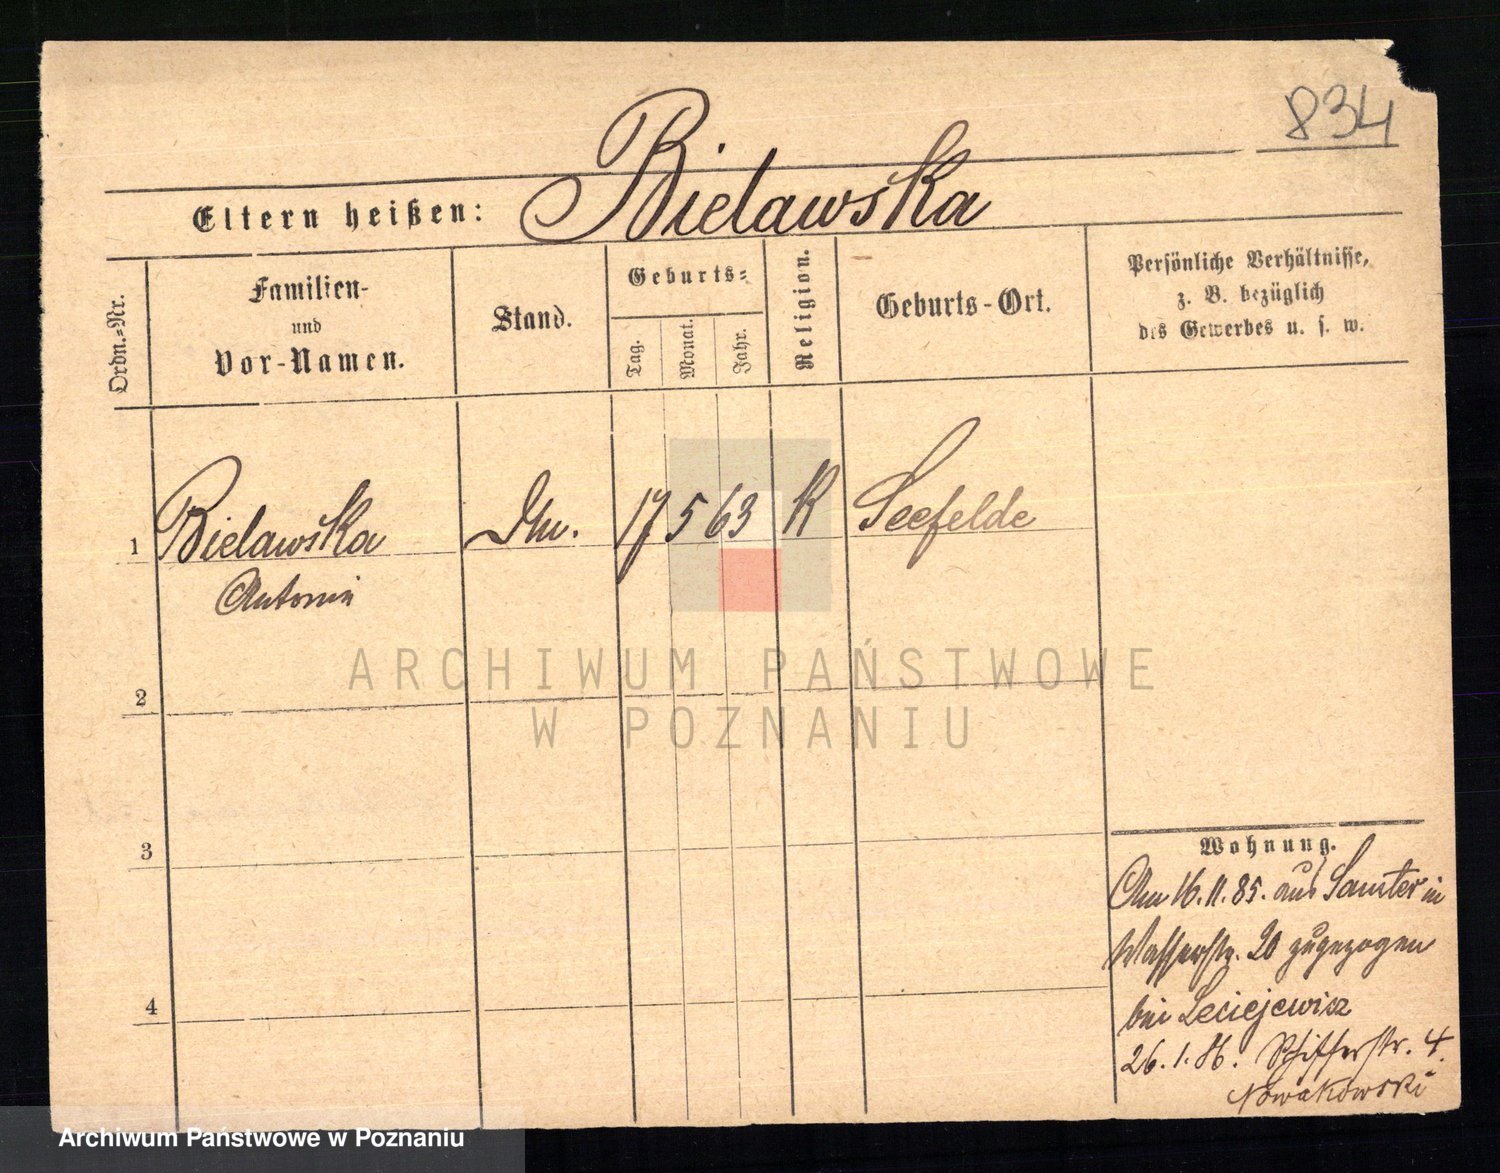 834
Eltern heißen: Bielawska
Ordn.-Nr.
Familien-
und
Vor-Namen.
Stand.
Geburts-
Tag.
Monat.
Jahr.
Religion.
Geburts-Ort.
Persönliche Verhältnisse,
z. B. bezüglich
des Gewerbes u. s. w.
1 Bielawska 17 5 63 K Seefelde
Antonie
2
3
4
Wohnung.
Am 16.11.85. aus Samter in
Wasserstr. 20 zugezogen
bei Leciejewicz
26.1.86. Schifferstr. 4.
Nowakowski
ARCHIWUM PAŃSTWOWE
W POZNANIU
Archiwum Państwowe w Poznaniu